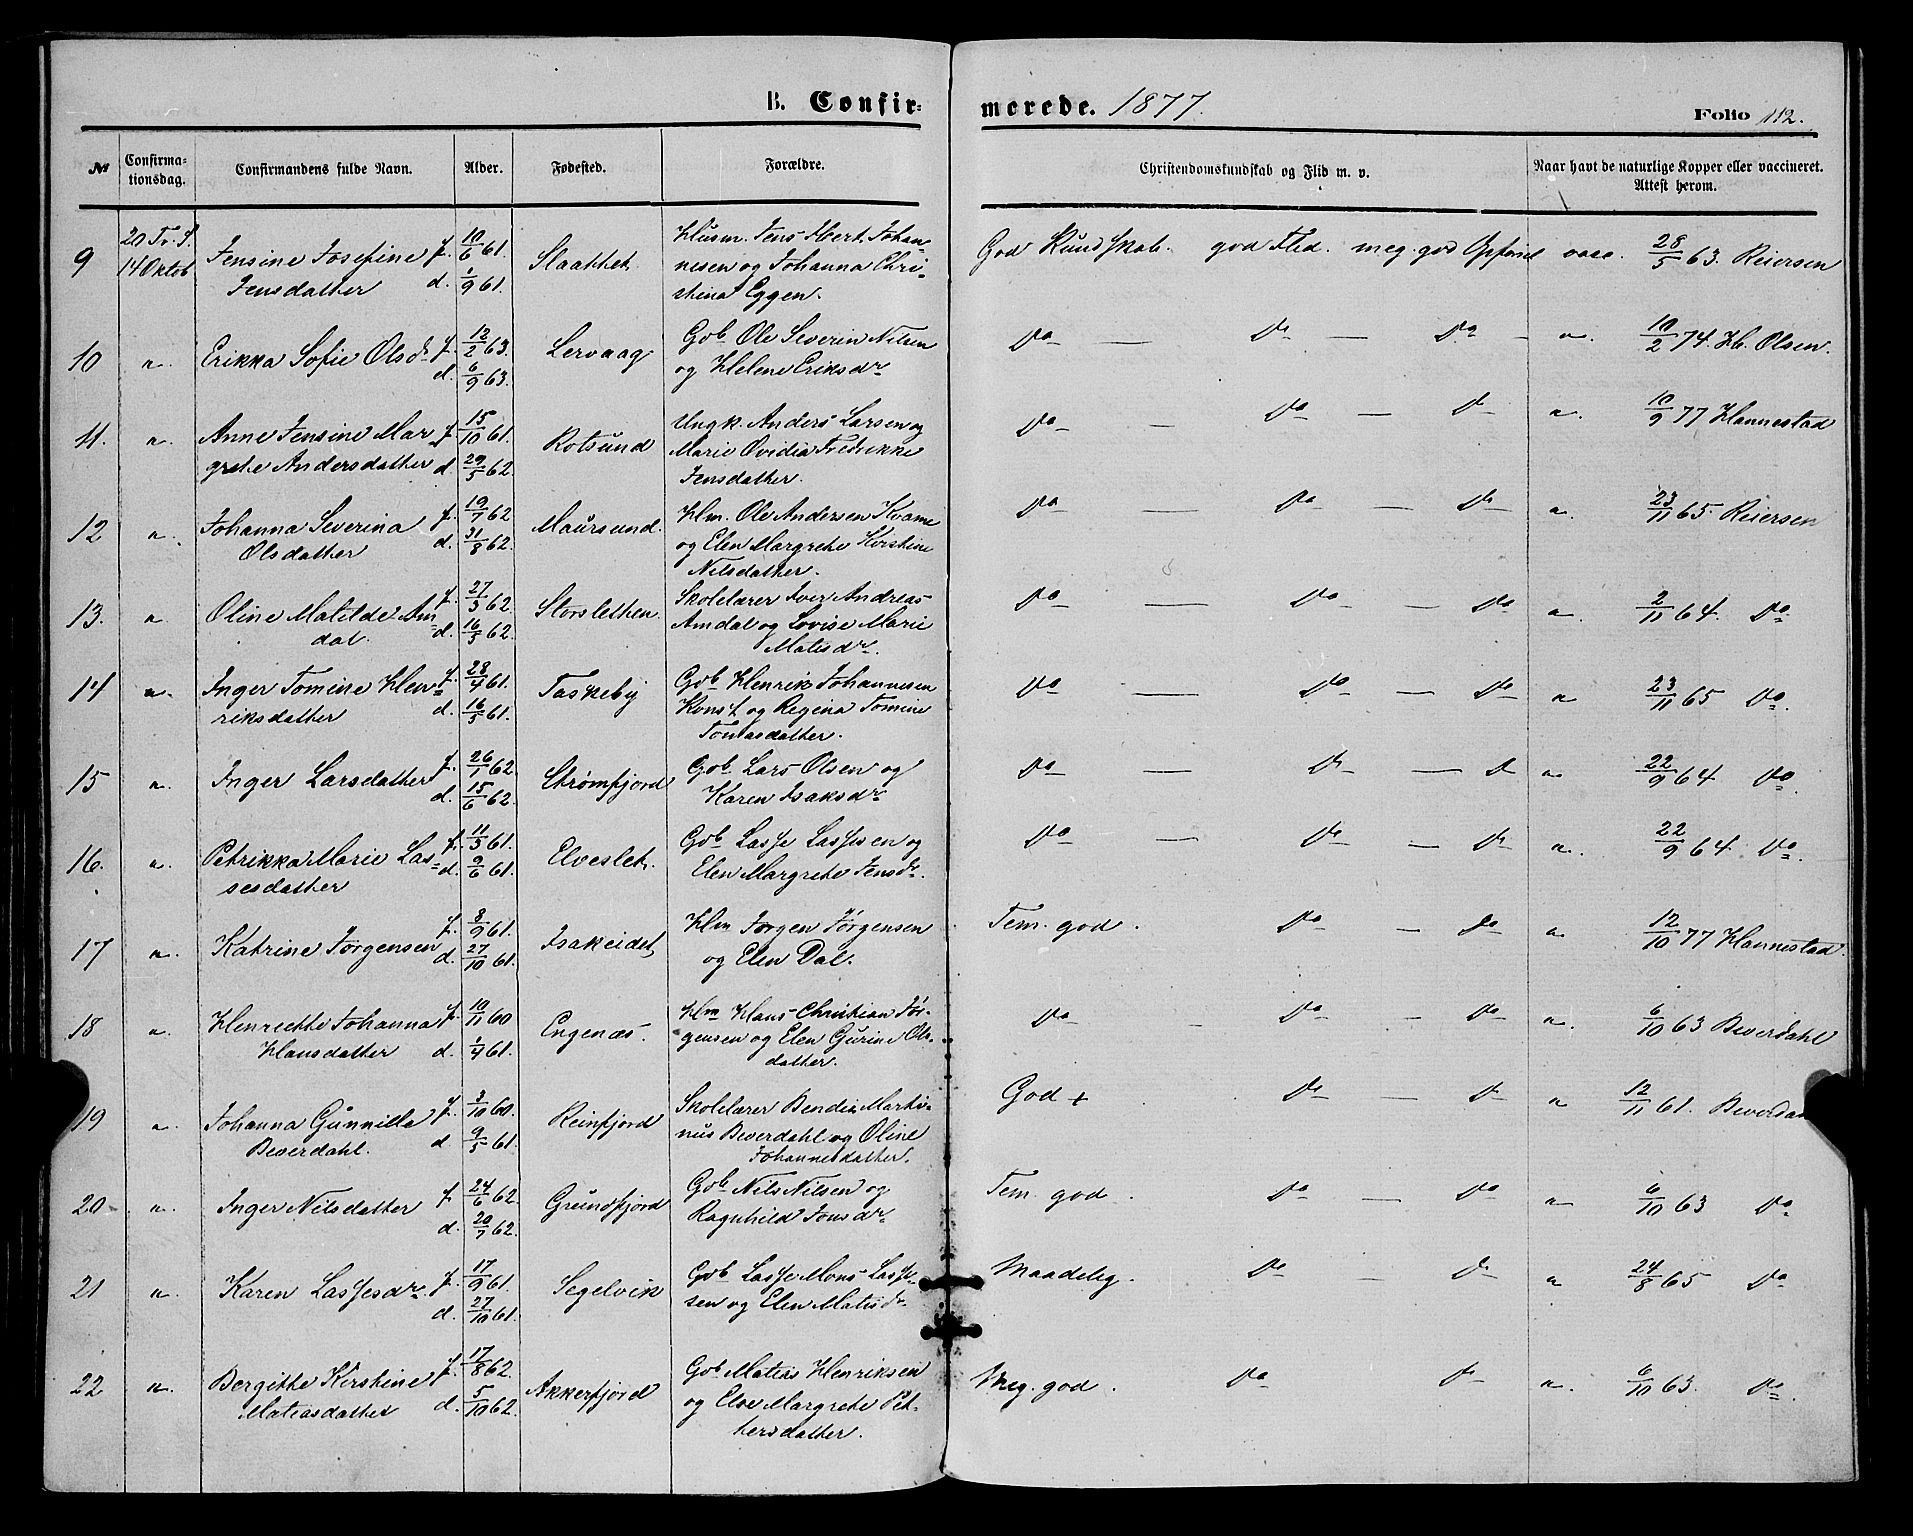 B. Confir-merede. 1877.
Folio 112.
№ Confirma-tionsdag. Confirmandens fulde Navn. Alder. Fødested. Forældre. Christendomskundskab og Flid m. v. Naar havt de naturlige Kopper eller vaccineret. Attest herom.
9 20 Tr. S. 14 Oktob Jensine Josefine Jensdatter f. 10/6 61. d. 1/9 61. Slaattet
Husm. Jens Hert. Johan-
nesen og Johanna Chri-
stina Eggen.
God Kundskab. god Flid. meg. god Opførsel vacc. 28/5 63. Reiersen
10 " Erikka Sofie Olsdr f. 12/2 63. d. 6/9 63. Lervaag
Gdb Ole Severin Nilsen
og Helene Eriksdr
Do — Do — Do — " 10/2 74. H. Olsen.
11. " Anne Jensine Mar-
grethe Andersdatter f. 15/10 61. d. 29/5 62 Rotsund
Ungk. Anders Larsen og
Marie Ovidia Fredrikke
Jensdatter.
Do — Do — Do " 10/9 77 Hannestad
12 " Johanna Severina
Olsdatter f. 19/7 62 d. 31/8 62. Maursund.
Hm. Ole Andersen Kvame
og Elen Margrethe Kirstine
Nilsdatter.
Do — Do — Do " 23/11 65. Reiersen
13. " Oline Matilde Am-
dal. f. 27/3 62. d. 16/5 62. Storsletten
Skolelærer Iver Andreas
Amdal og Lovise Marie
Matisdr.
Do — Do — Do " 2/11 64. Do
14 " Inger Tomine Hen-
riksdatter f. 28/4 61. d. 16/5 61. Taskeby
Gdb Henrik Johannesen
Kvnst og Regina Tomine
Tomasdatter.
Do — Do — Do " 23/11 65 Do
15 " Inger Larsdatter f. 26/1 62. d. 15/6 62. Strømfjord
Gdb Lars Olsen og
Karen Isaksdr
Do — Do — Do " 22/9 64 Do
16. " Petrikka Marie Las-
sesdatter f. 11/3 61. d. 9/6 61. Elveslet
Gdb Lasse Lassesen og
Elen Margrete Jensdr.
Do — Do — Do " 22/9 64 Do.
17 " Katrine Jørgensen f. 8/9 61. d. 27/10 61. Isakeidet
Hm Jørgen Jørgensen
og Elen Dal.
Tem. god. Do — Do " 12/10 77 Hannestad.
18 " Henrecthe Johanna
Hansdatter f. 10/11 60 d. 1/4 61. Engenæs.
Hm Hans Christian Jør-
gensen og Elen Gurine Ols-
datter.
Do — Do — Do " 6/10 63 Beverdahl
19 " Johanna Gunnilla
Beverdahl. f. 3/10 60. d 9/5 61. Reinfjord
Skolelærer Bendix Marti-
nus Beverdahl og Oline
Johannesdatter.
God + Do — Do " 12/11 61. Beverda
20 " Inger Nilsdatter f. 24/6 62. d. 20/7 62. Grundfjord
Gdb Nils Nilsen og
Ragnhild Jonsdr
Tem. god. Do — Do " 6/10 63 Do
21 " Karen Lassesdr f. 17/9 61. d. 27/10 61. Segelvik
Gdb Lasse Mons Lasse-
sen og Elen Matisdr
Maadelig. Do — Do " 24/8 65 Do
22 " Bergitte Kirstine
Mateasdatter f. 17/8 62. d. 5/10 62. Akkerfjord
Gdb Matias Henriksen
og Else Margrete Pet-
tersdatter.
Meg. god. Do Do " 6/10 63. Do